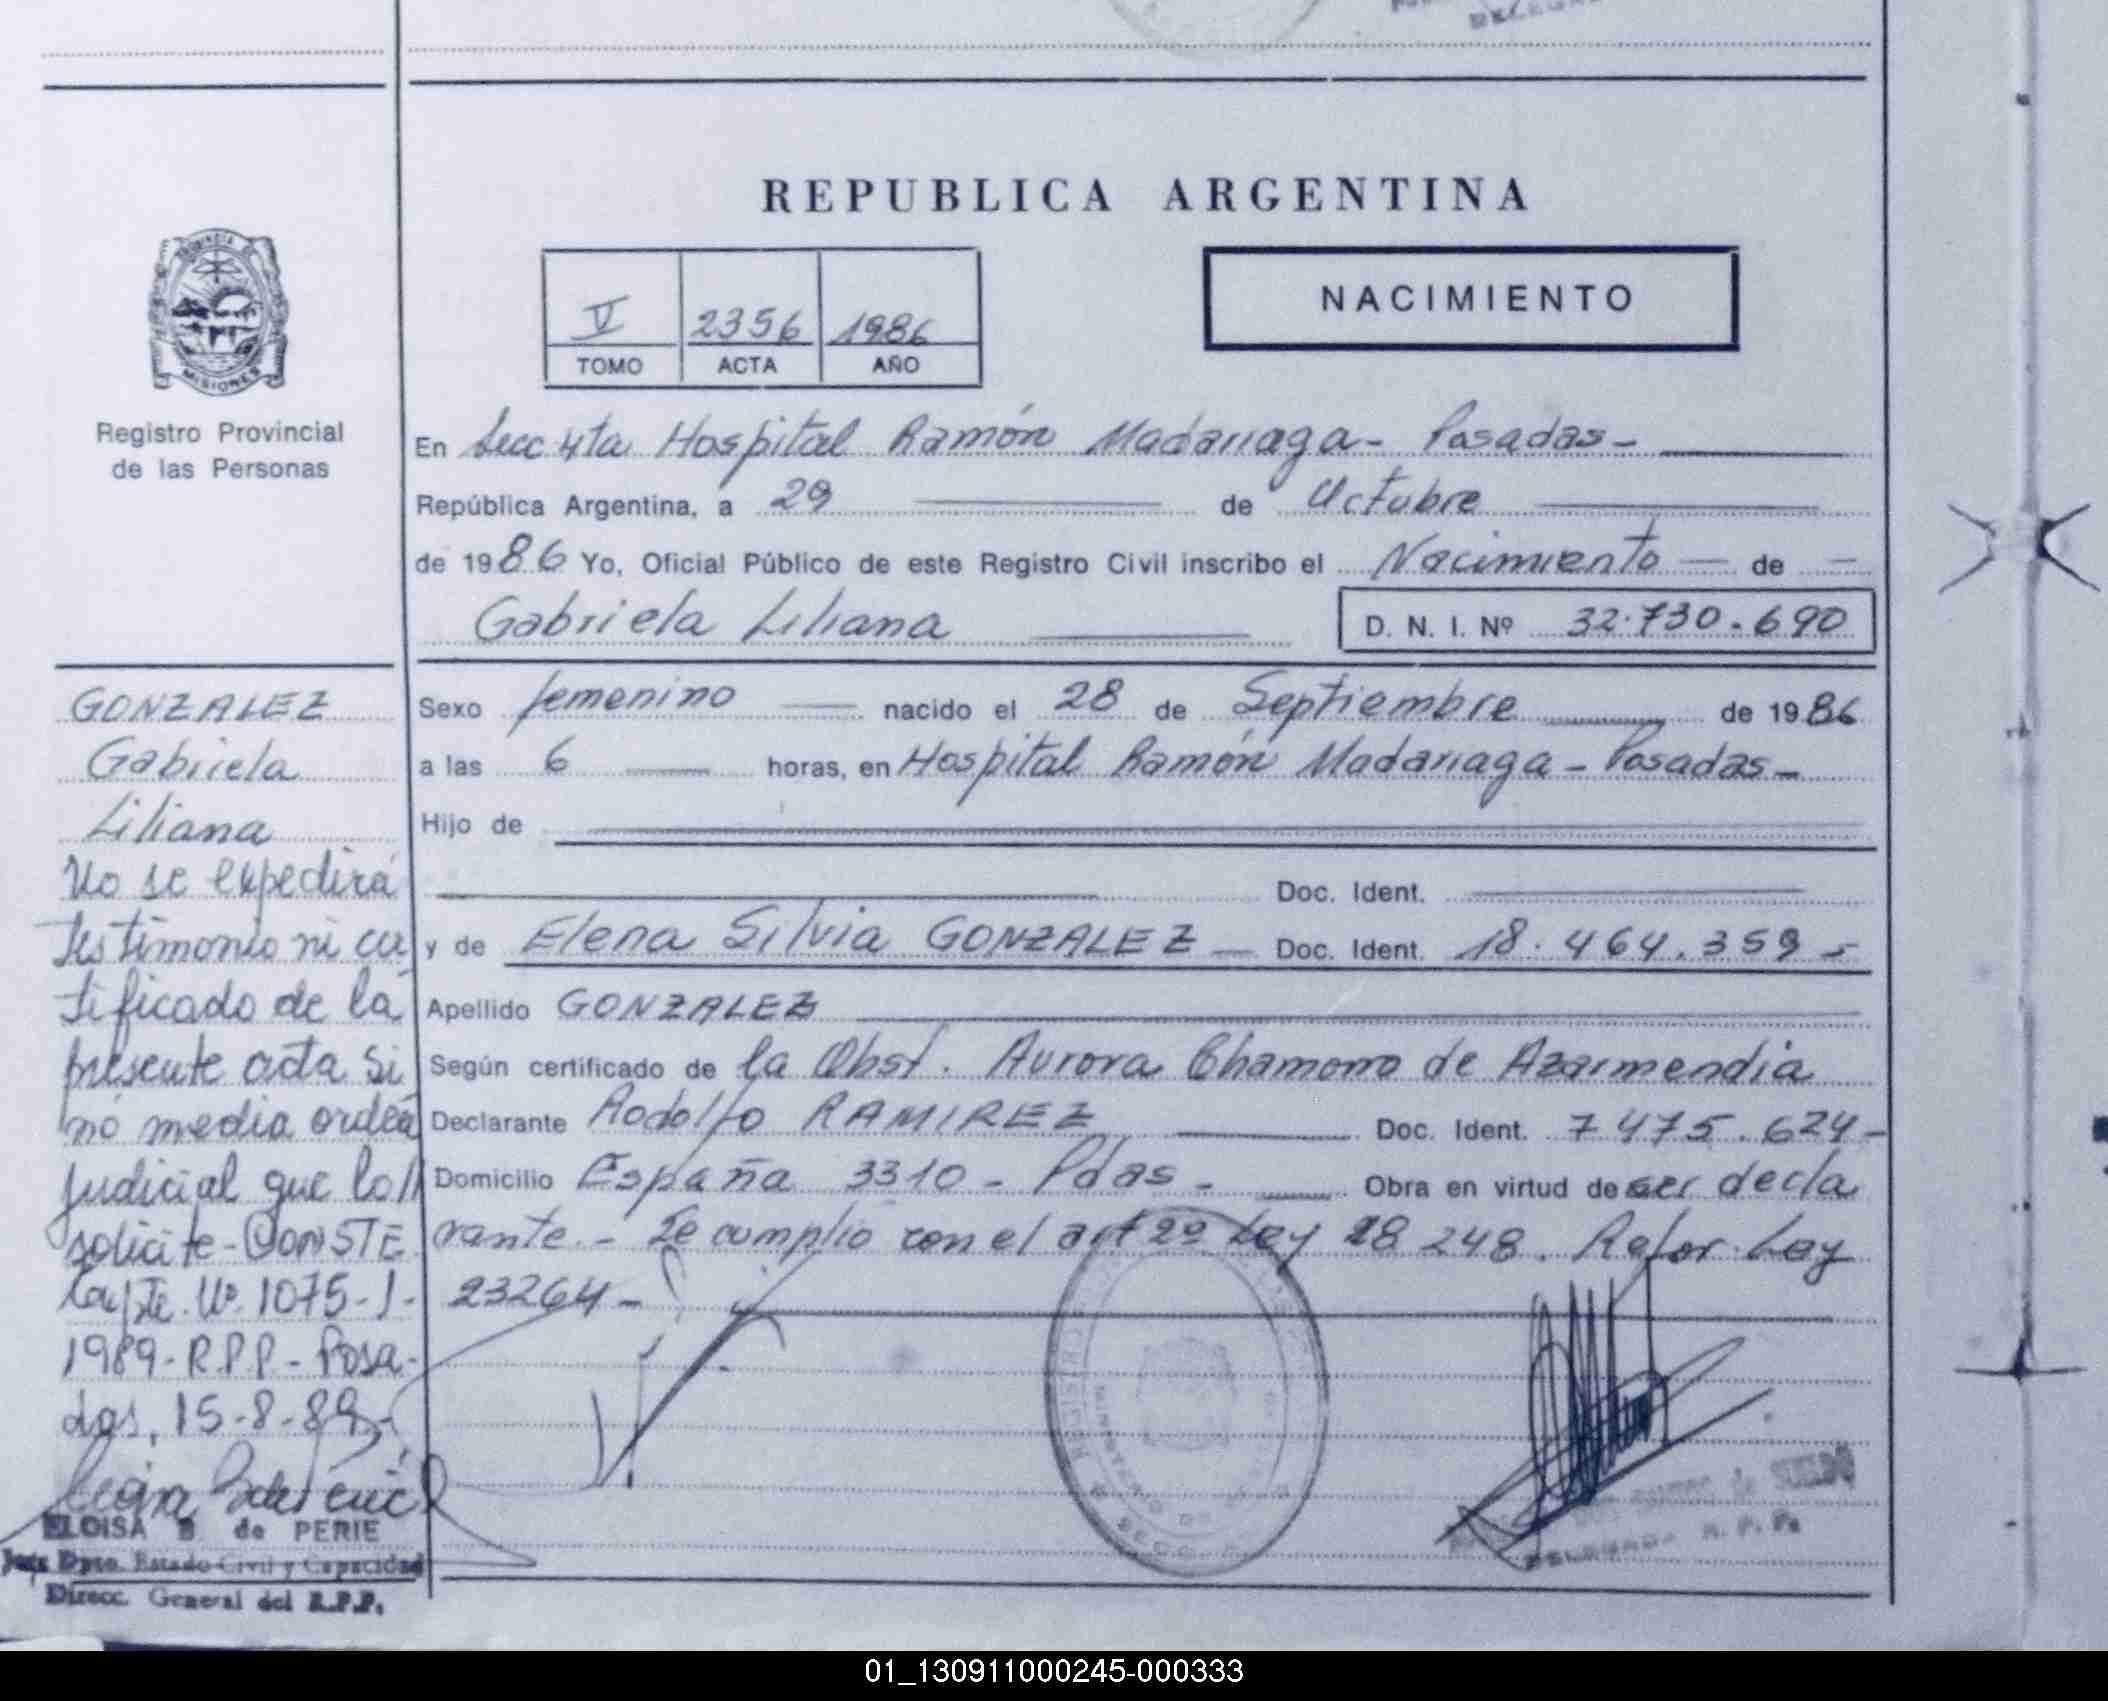 REPUBLICA ARGENTINA
PROVINCIA DE
MISIONES
Registro Provincial
de las Personas
V 2356 1986
TOMO ACTA AÑO
NACIMIENTO
En Secc 4ta Hospital Ramón Madariaga - Posadas -
República Argentina, a 29 de Octubre
de 1986 Yo, Oficial Público de este Registro Civil inscribo el Nacimiento de
Gabriela Liliana D. N. I. Nº 32.730.690
Sexo femenino nacido el 28 de Septiembre de 1986
a las 6 horas, en Hospital Ramón Madariaga - Posadas -
Hijo de
Doc. Ident.
y de Elena Silvia GONZALEZ Doc. Ident. 18.464.359 -
Apellido GONZALEZ
Según certificado de la Obst. Aurora Chamorro de Azarmendia
Declarante Rodolfo RAMIREZ Doc. Ident. 7475.624 -
Domicilio España 3310 - Pdas - Obra en virtud de ser decla
rante. - Se cumplio con el art 2º Ley 18248. Refor. Ley
23264 -
GONZALEZ
Gabriela
Liliana
No se expedirá
testimonio ni cer
tificado de la
presente acta si
no media orden
judicial que lo
solicite - CONSTE
Expte. Nº 1075-J-
1989 - R.P.P. - Posa-
das, 15-8-89 -
ELOISA B de PERIE
Jefe Dpto. Estado Civil y Capacidad
Direcc. General del R.P.P.
de SUELDO
DELEGADA R. P. P.
01_130911000245-000333